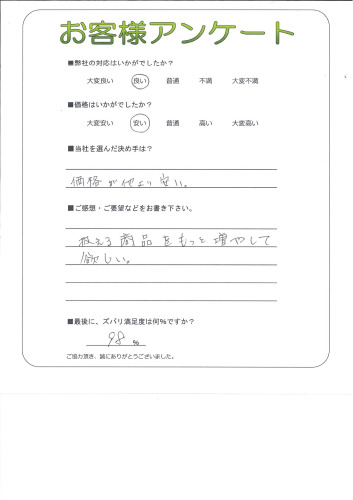 お客様アンケート
■弊社の対応はいかがでしたか？
大変良い 良い 普通 不満 大変不満
■価格はいかがでしたか？
大変安い 安い 普通 高い 大変高い
■当社を選んだ決め手は？
価格が他より安い。
■ご感想・ご要望などをお書き下さい。
扱える商品をもっと増やして
欲しい。
■最後に、ズバリ満足度は何％ですか？
98 ％
ご協力頂き、誠にありがとうございました。